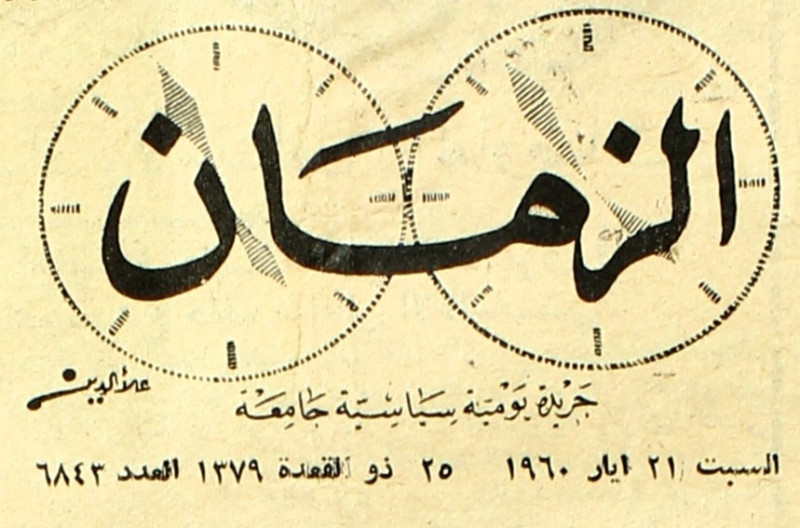 الزمان
علاء الدين
جريدة يومية سياسية جامعة
السبت ٢١ ايار ١٩٦٠ ٢٥ ذو القعدة ١٣٧٩ العدد ٦٨٤٣